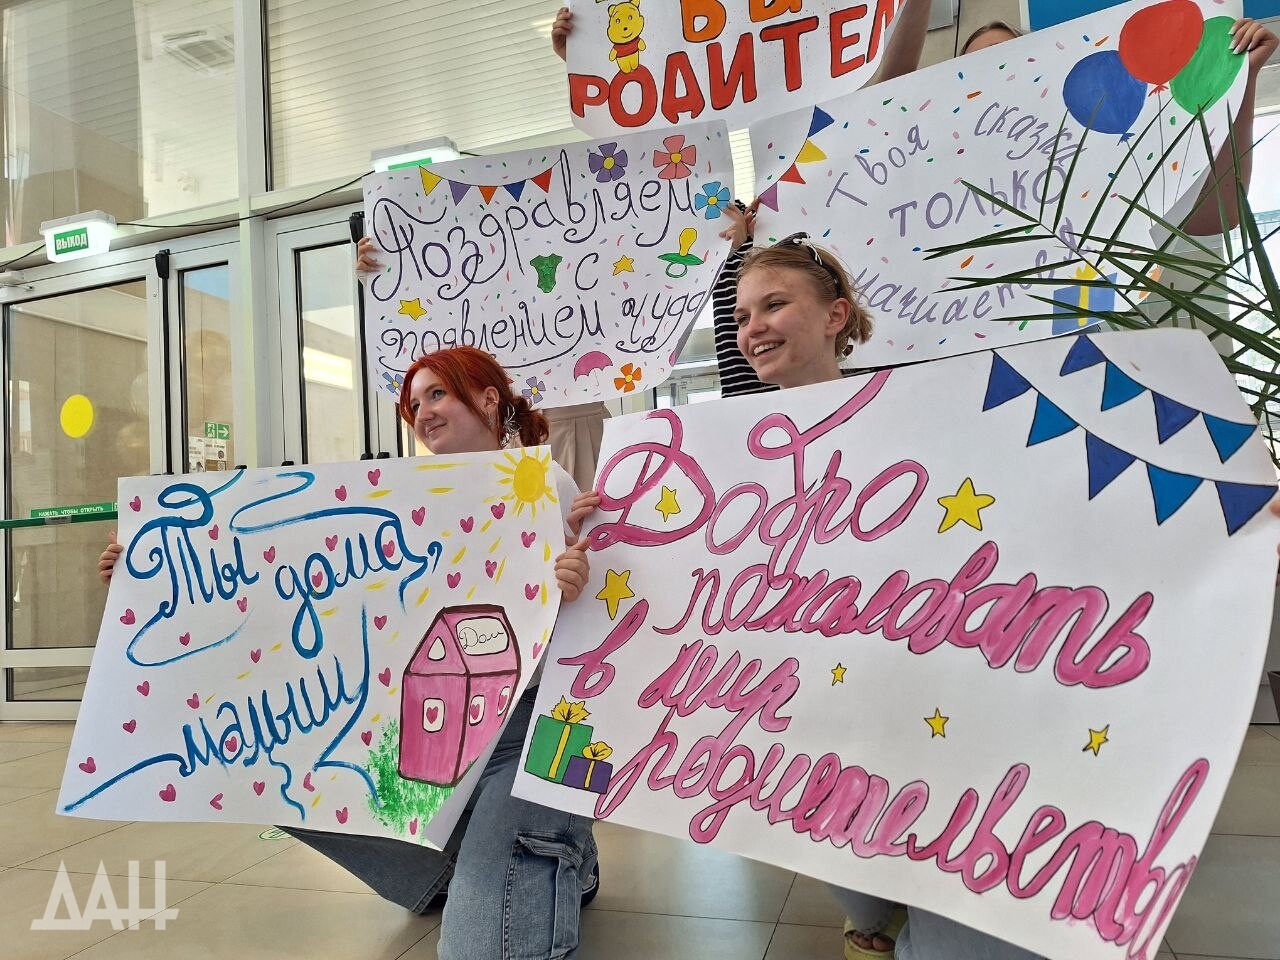 ВЫ
РОДИТЕЛ
Поздравляем
с
появлением чуда
Твоя сказка
только
начинается
ВЫХОД
НАЖАТЬ ЧТОБЫ ОТКРЫТЬ
Ты дома,
малыш
Дом
Добро
пожаловать
в мир
родительства
ДАН